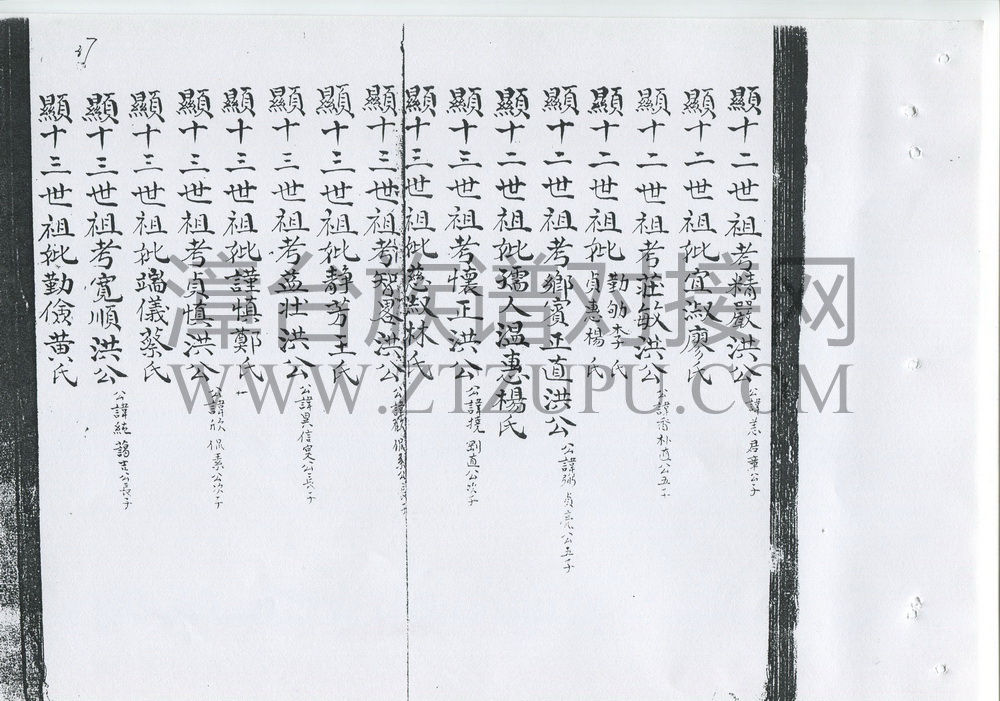 顯十二世祖考精嚴洪公
公諱 君章公子
顯十二世祖妣宜淑廖氏
顯十二世祖考莊敏洪公
公諱香朴直公五子
顯十二世祖妣勤劬李氏 貞惠楊氏
顯十二世祖考鄉賓正直洪公
公諱弼貞亮公五子
顯十二世祖妣孺人温惠楊氏
顯十三世祖考懷正洪公
公諱 剛直公次子
顯十三世祖妣慈淑林氏
顯十三世祖考智畧洪公
公諱歡侃素公三子
顯十三世祖妣静芳王氏
顯十三世祖考益壯洪公
公諱異信実公長子
顯十三世祖妣謹慎鄭氏
顯十三世祖考貞慎洪公
公諱欣侃素公次子
顯十三世祖妣端儀蔡氏
顯十三世祖考寬順洪公
公諱純 公長子
顯十三世祖妣勤儉黄氏
37
漳台族谱对接网
WWW.ZTZUPU.COM